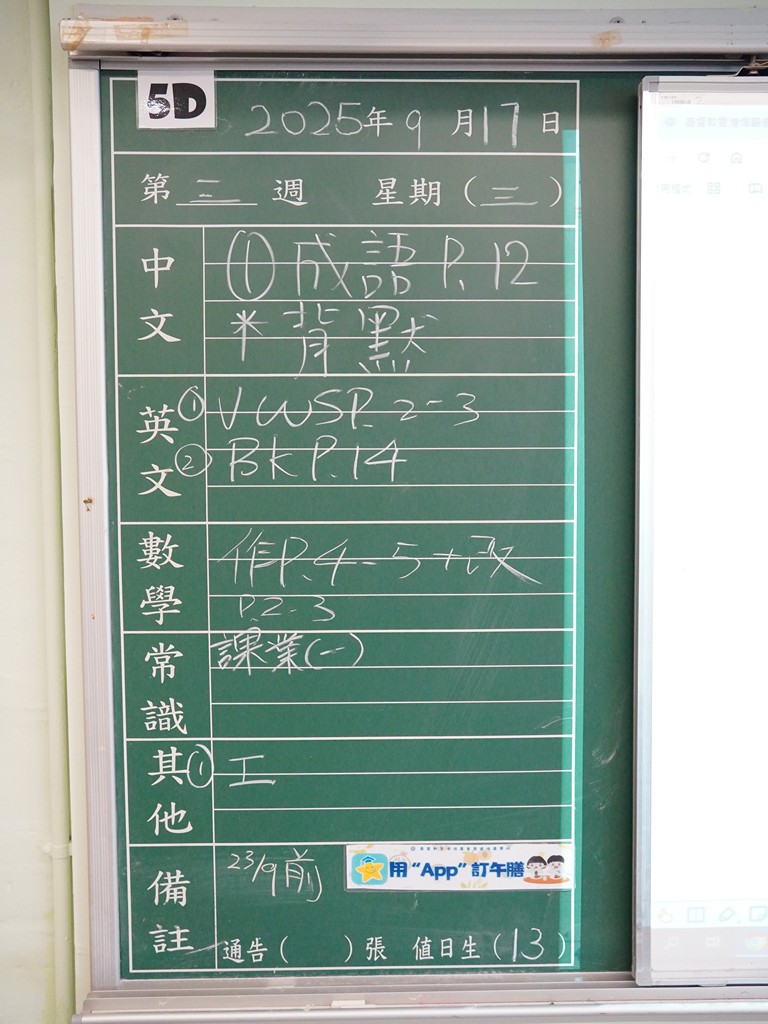 5D
2025年9月17日
第三週 星期(三)
中文
① 成語 P.12
* 背默
英文
① VWS P.2-3
② BK P.14
數學
作P.4-5+改
P.2-3
常識
課業(一)
其他
① 工
備註
23/9前
用“App”訂午膳
通告( )張 值日生(13)